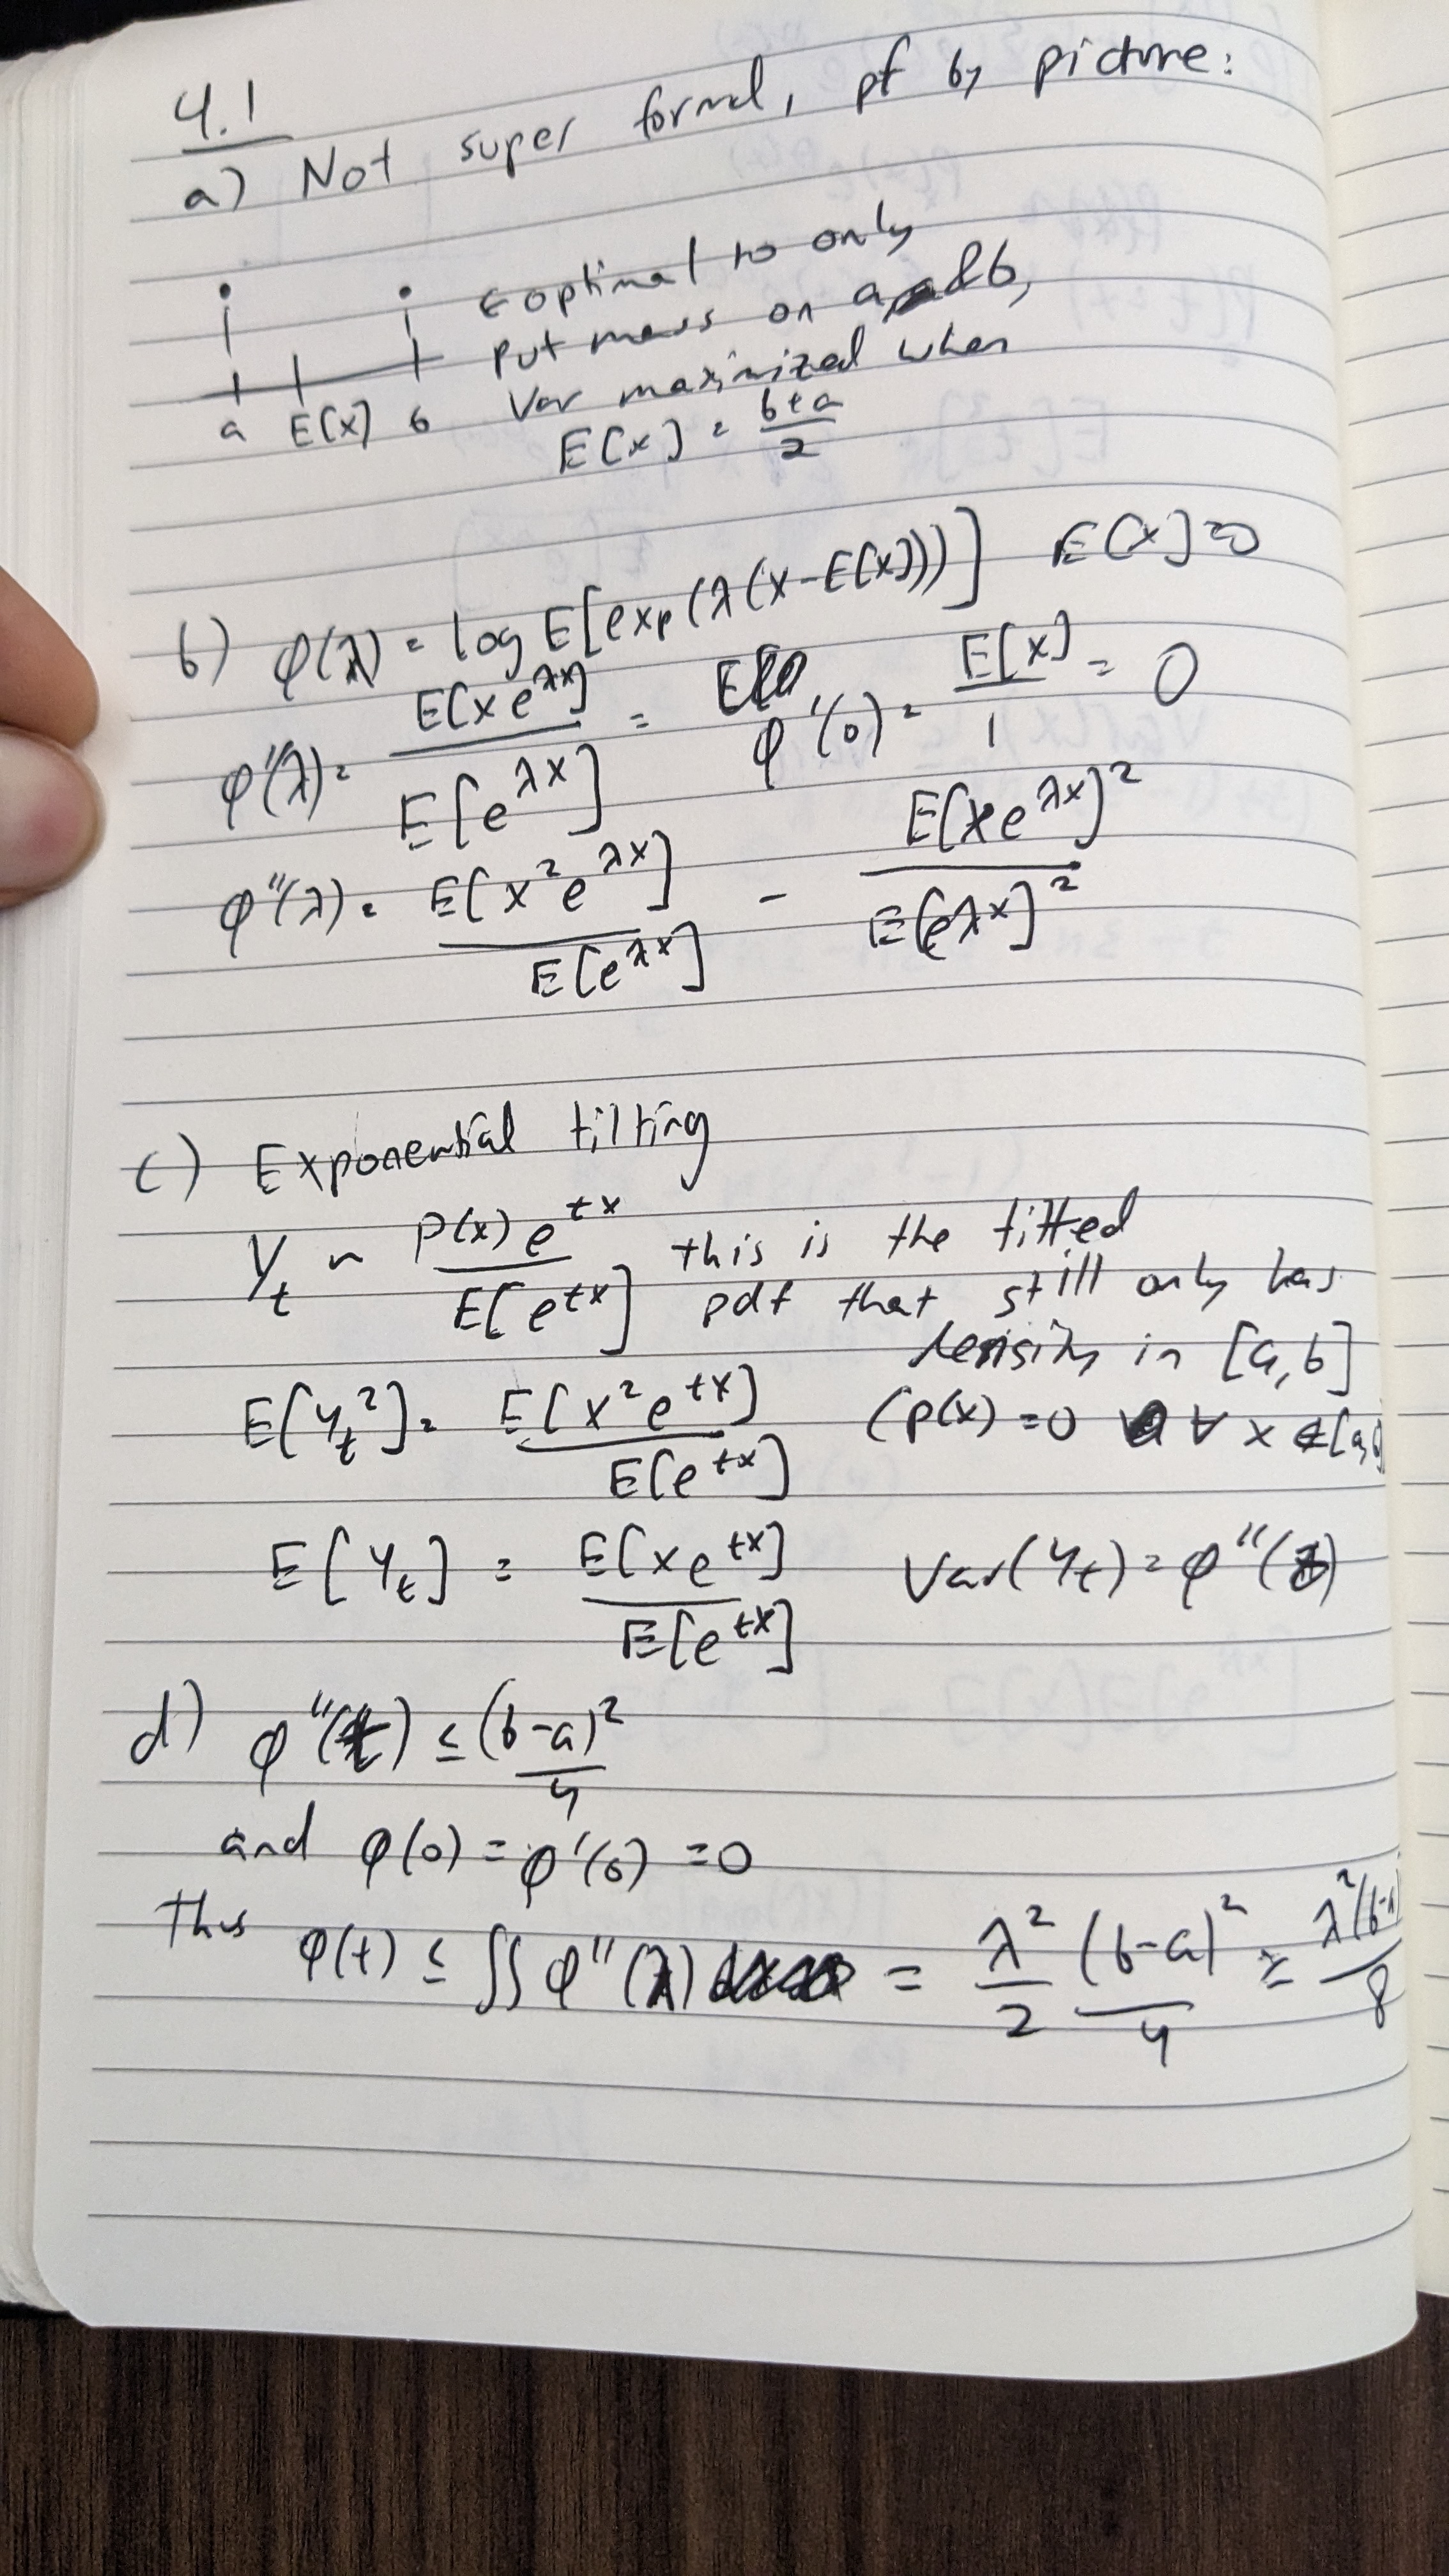 4.1
a) Not super formal, pf by picture:
← optimal to only
put mass on a & b,
Var maximized when
a E[x] b
E[x] = (b+a)/2
b) φ(λ) = log E[exp(λ(x-E[x]))] E[x]=0
φ'(λ) = E[xe^{λx}] / E[e^{λx}] = φ'(0) = E[x]/1 = 0
φ''(λ) = E[x²e^{λx}] / E[e^{λx}] - E[xe^{λx}]² / E[e^{λx}]²
c) Exponential tilting
Y_t ~ P(x)e^{tx} / E[e^{tx}] this is the tilted
pdf that still only has
density in [a,b]
(p(x) = 0 ∀ x ∉ [a,b]
E[Y_t²] = E[x²e^{tx}] / E[e^{tx}]
E[Y_t] = E[xe^{tx}] / E[e^{tx}] Var(Y_t) = φ''(t)
d) φ''(t) ≤ (b-a)²/4
and φ(0) = φ'(0) = 0
Thus φ(t) ≤ ∫∫ φ''(λ) = λ²/2 (b-a)²/4 = λ²(b-a)/8